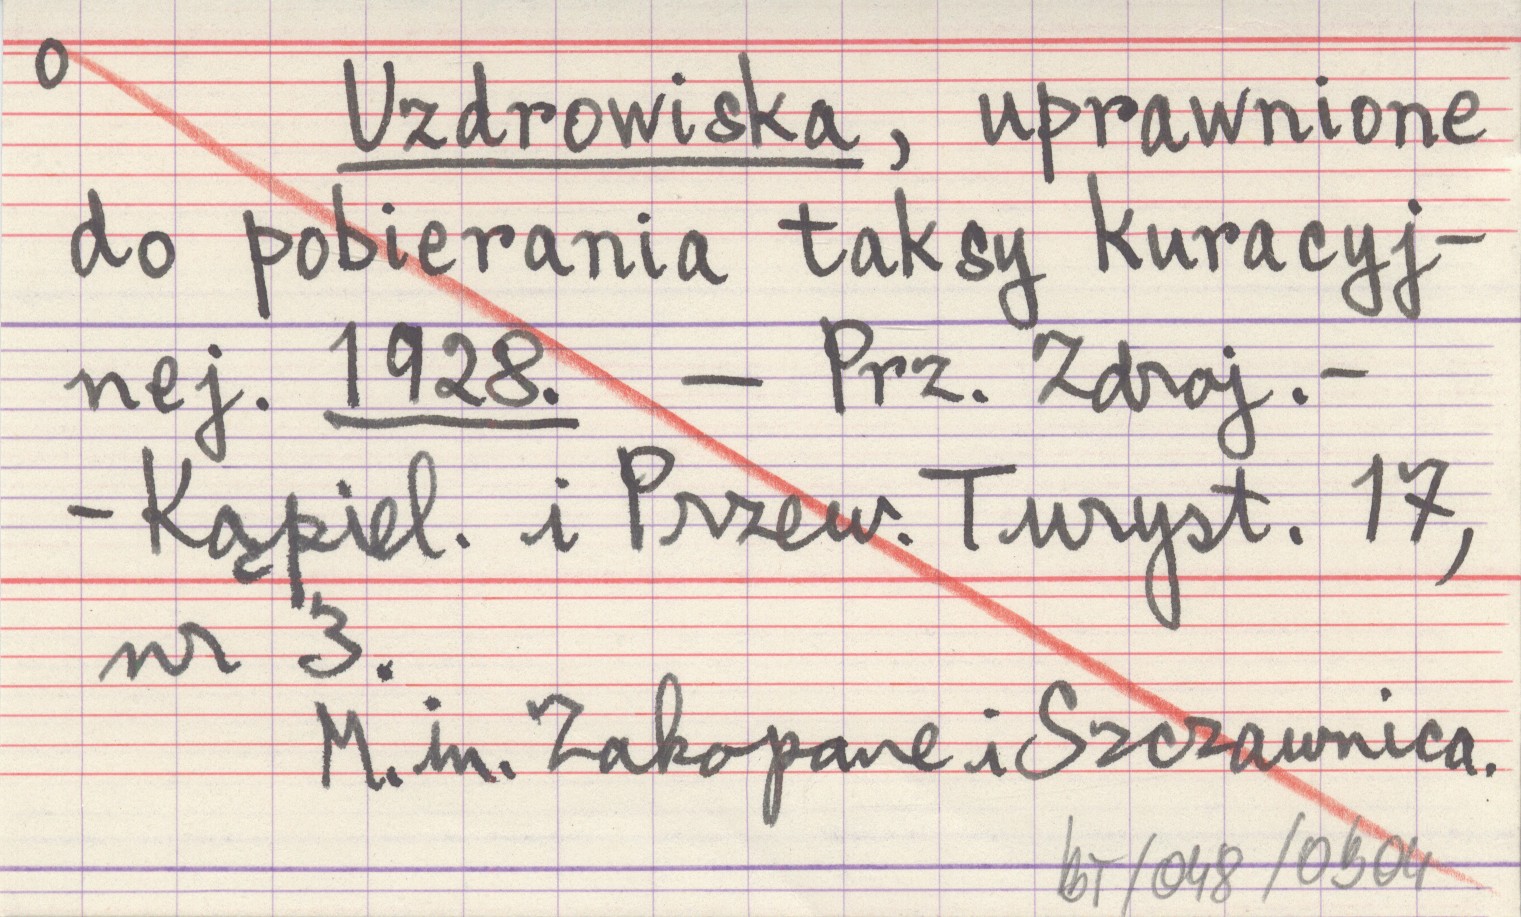 o Uzdrowiska, uprawnione
do pobierania taksy kuracyj-
nej. 1928. — Prz. Zdroj.-
-Kąpiel. i Przew. Turyst. 17,
nr 3.
M. in. Zakopane i Szczawnica.
bT/048/0304